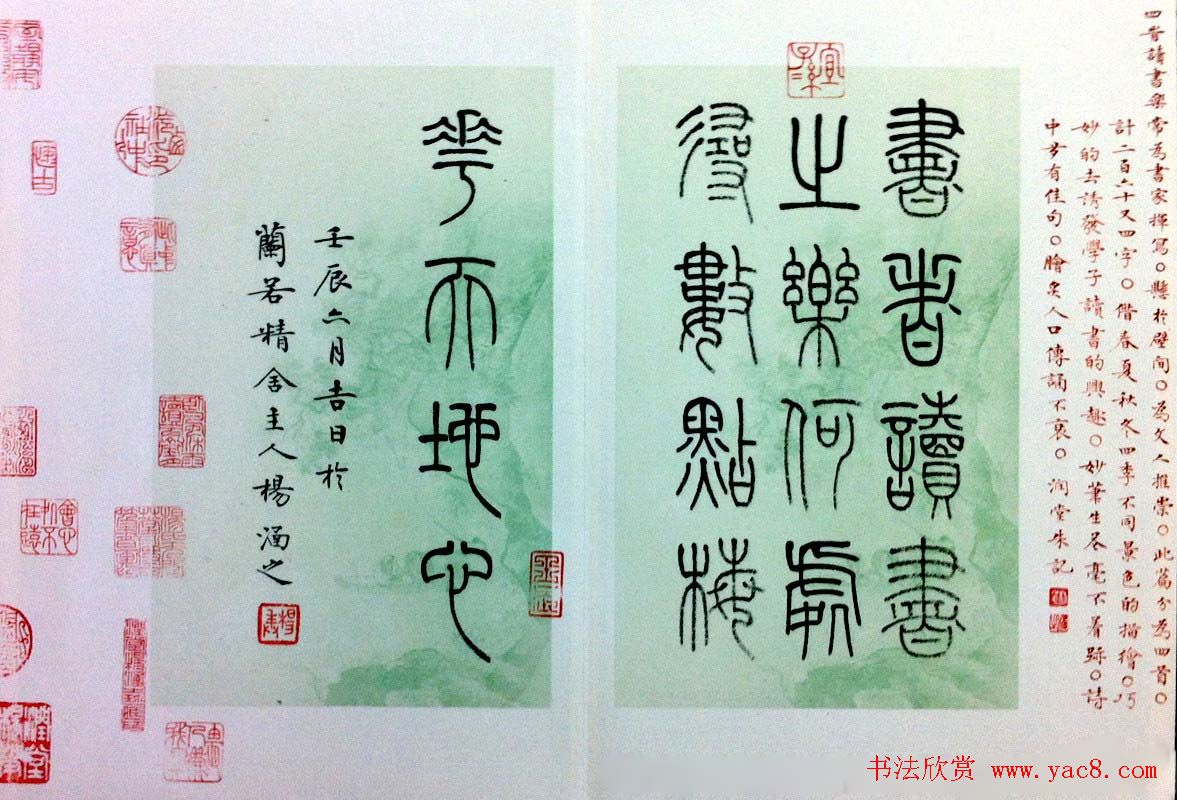 四首讀書樂常為書家揮寫。懸於壁間。為文人推崇。此篇分為四首。
計二百六十又四字。借春夏秋冬四季不同景色的描繪。巧
妙的去誘發學子讀書的興趣。妙筆生毫不着跡。詩
中多有佳句。膾炙人口傳誦不衰。潤堂朱記
宜子孫
書者讀書
之樂何處
尋數點梅
花天地心
壬辰六月吉日於
蘭若精舍主人楊涵之
會心不在遠
书法欣赏 www.yac8.com